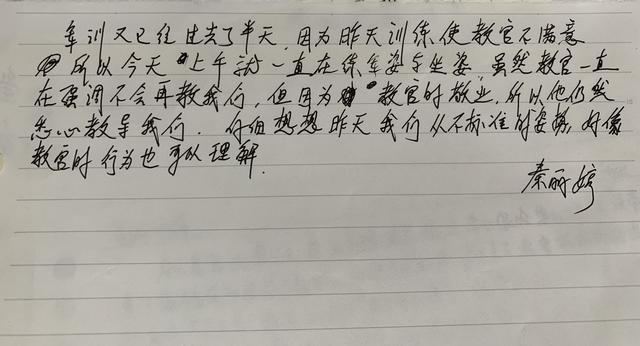 军训又已经过去了半天,因为昨天训练使教官不满意
所以今天上午就一直在练军姿与坐姿,虽然教官一直
在强调不会再教我们,但因为教官的敬业,所以他仍然
悉心教导我们.仔细想想昨天我们从不标准的姿势,好像
教官的行为也可以理解.
秦丽婷